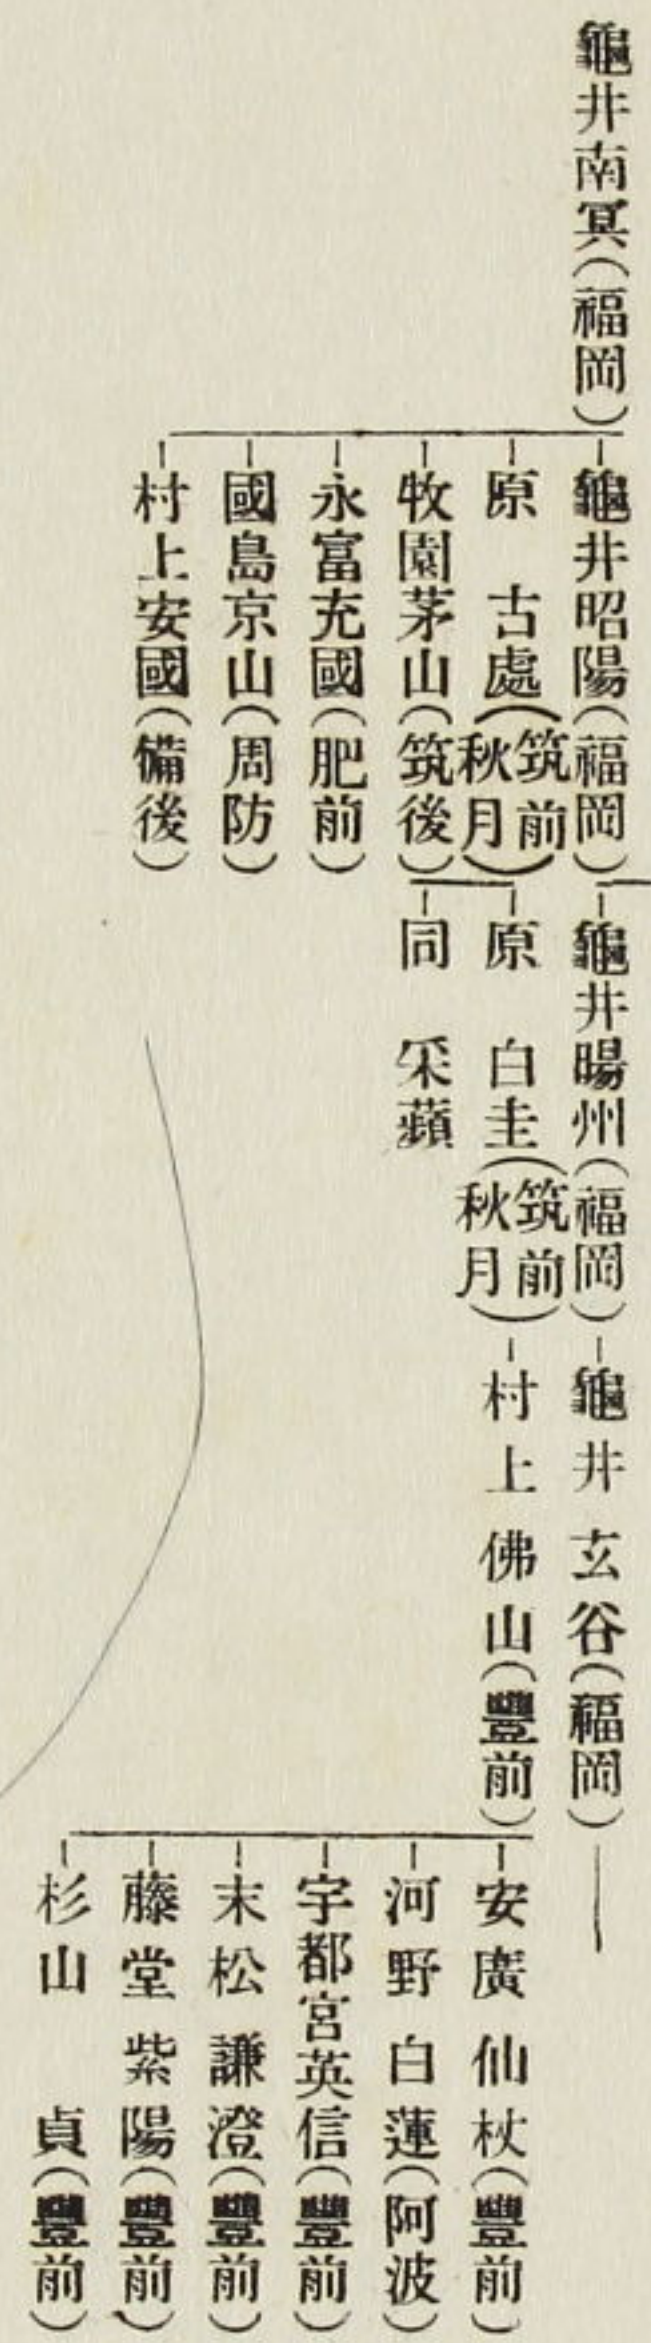 龜井南冥(福岡)
龜井昭陽(福岡)
原 古處(筑前秋月)
牧園茅山(筑後)
永富充國(肥前)
國島京山(周防)
村上安國(備後)
龜井暘州(福岡)
原 白圭(筑前秋月)
同 采蘋
龜井玄谷(福岡)
村上佛山(豐前)
安廣仙杖(豐前)
河野白蓮(阿波)
宇都宮英信(豐前)
末松謙澄(豐前)
藤堂紫陽(豐前)
杉山 貞(豐前)